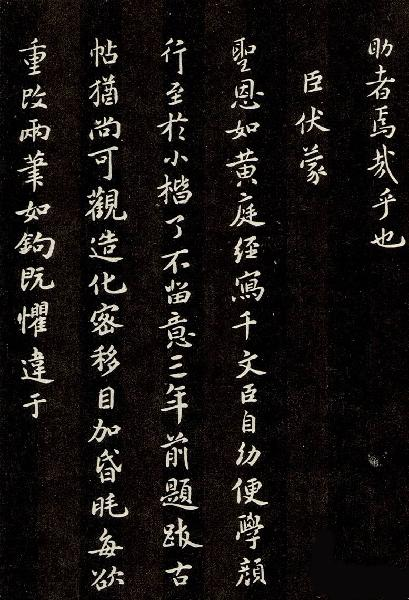 助者焉哉乎也
臣伏蒙
聖恩如黃庭經寫千文臣自幼便學顏
行至於小楷了不留意三年前題跋古
帖猶尚可觀造化密移目加昏眊每欲
重改兩筆如鉤既懼違于